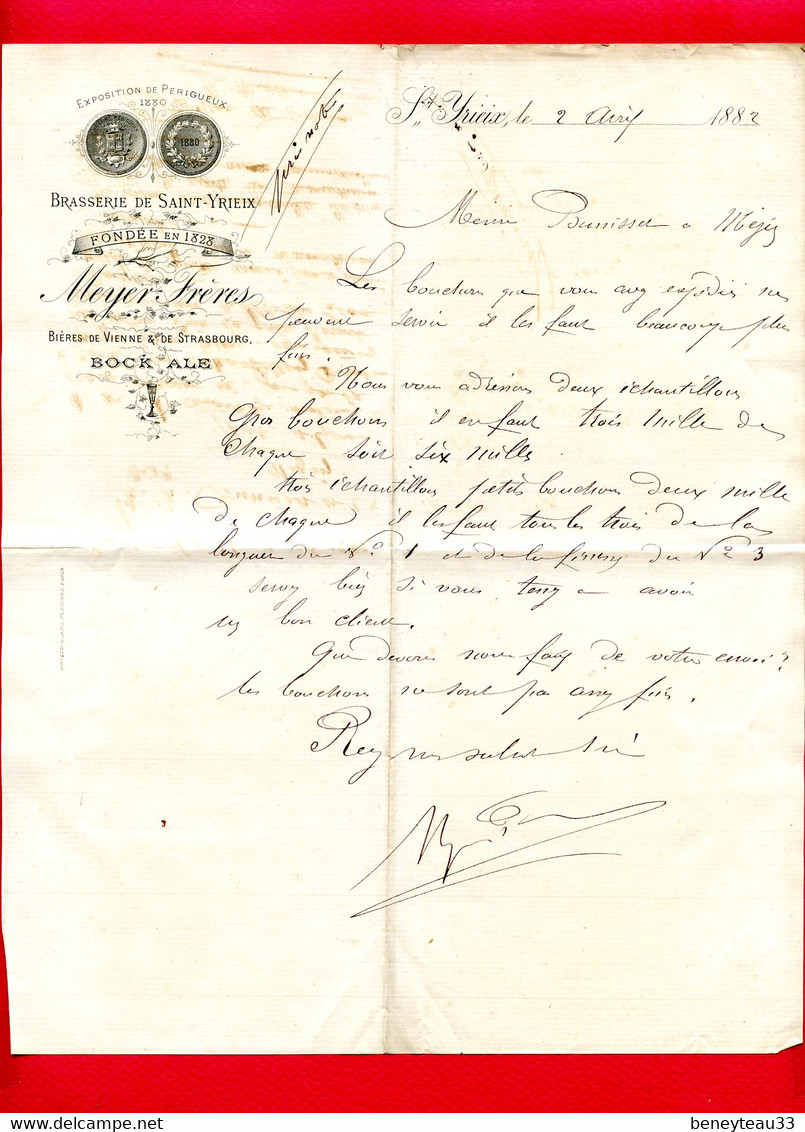 EXPOSITION DE PERIGUEUX
1880
1880
BRASSERIE DE SAINT-YRIEIX
FONDÉE EN 1828
Meyer Frères
BIÈRES DE VIENNE & DE STRASBOURG,
BOCK ALE
St Yrieix, le 2 Avril 1882
a Mèze
Les bouchons que vous avez expédiés ne
peuvent servir il les faut beaucoup plus
fins.
Nous vous adressons deux échantillons
Gros bouchons il en faut trois mille de
chaque soit six mille.
trois échantillons petits bouchons deux mille
de chaque il les faut tous les trois de la
longueur du No 1 et de la finesse du No 3
servez bien si vous tenez a avoir
un bon client.
Que devons nous faire de votre envoi?
les bouchons ne sont pas assez fins.
beneyteau33